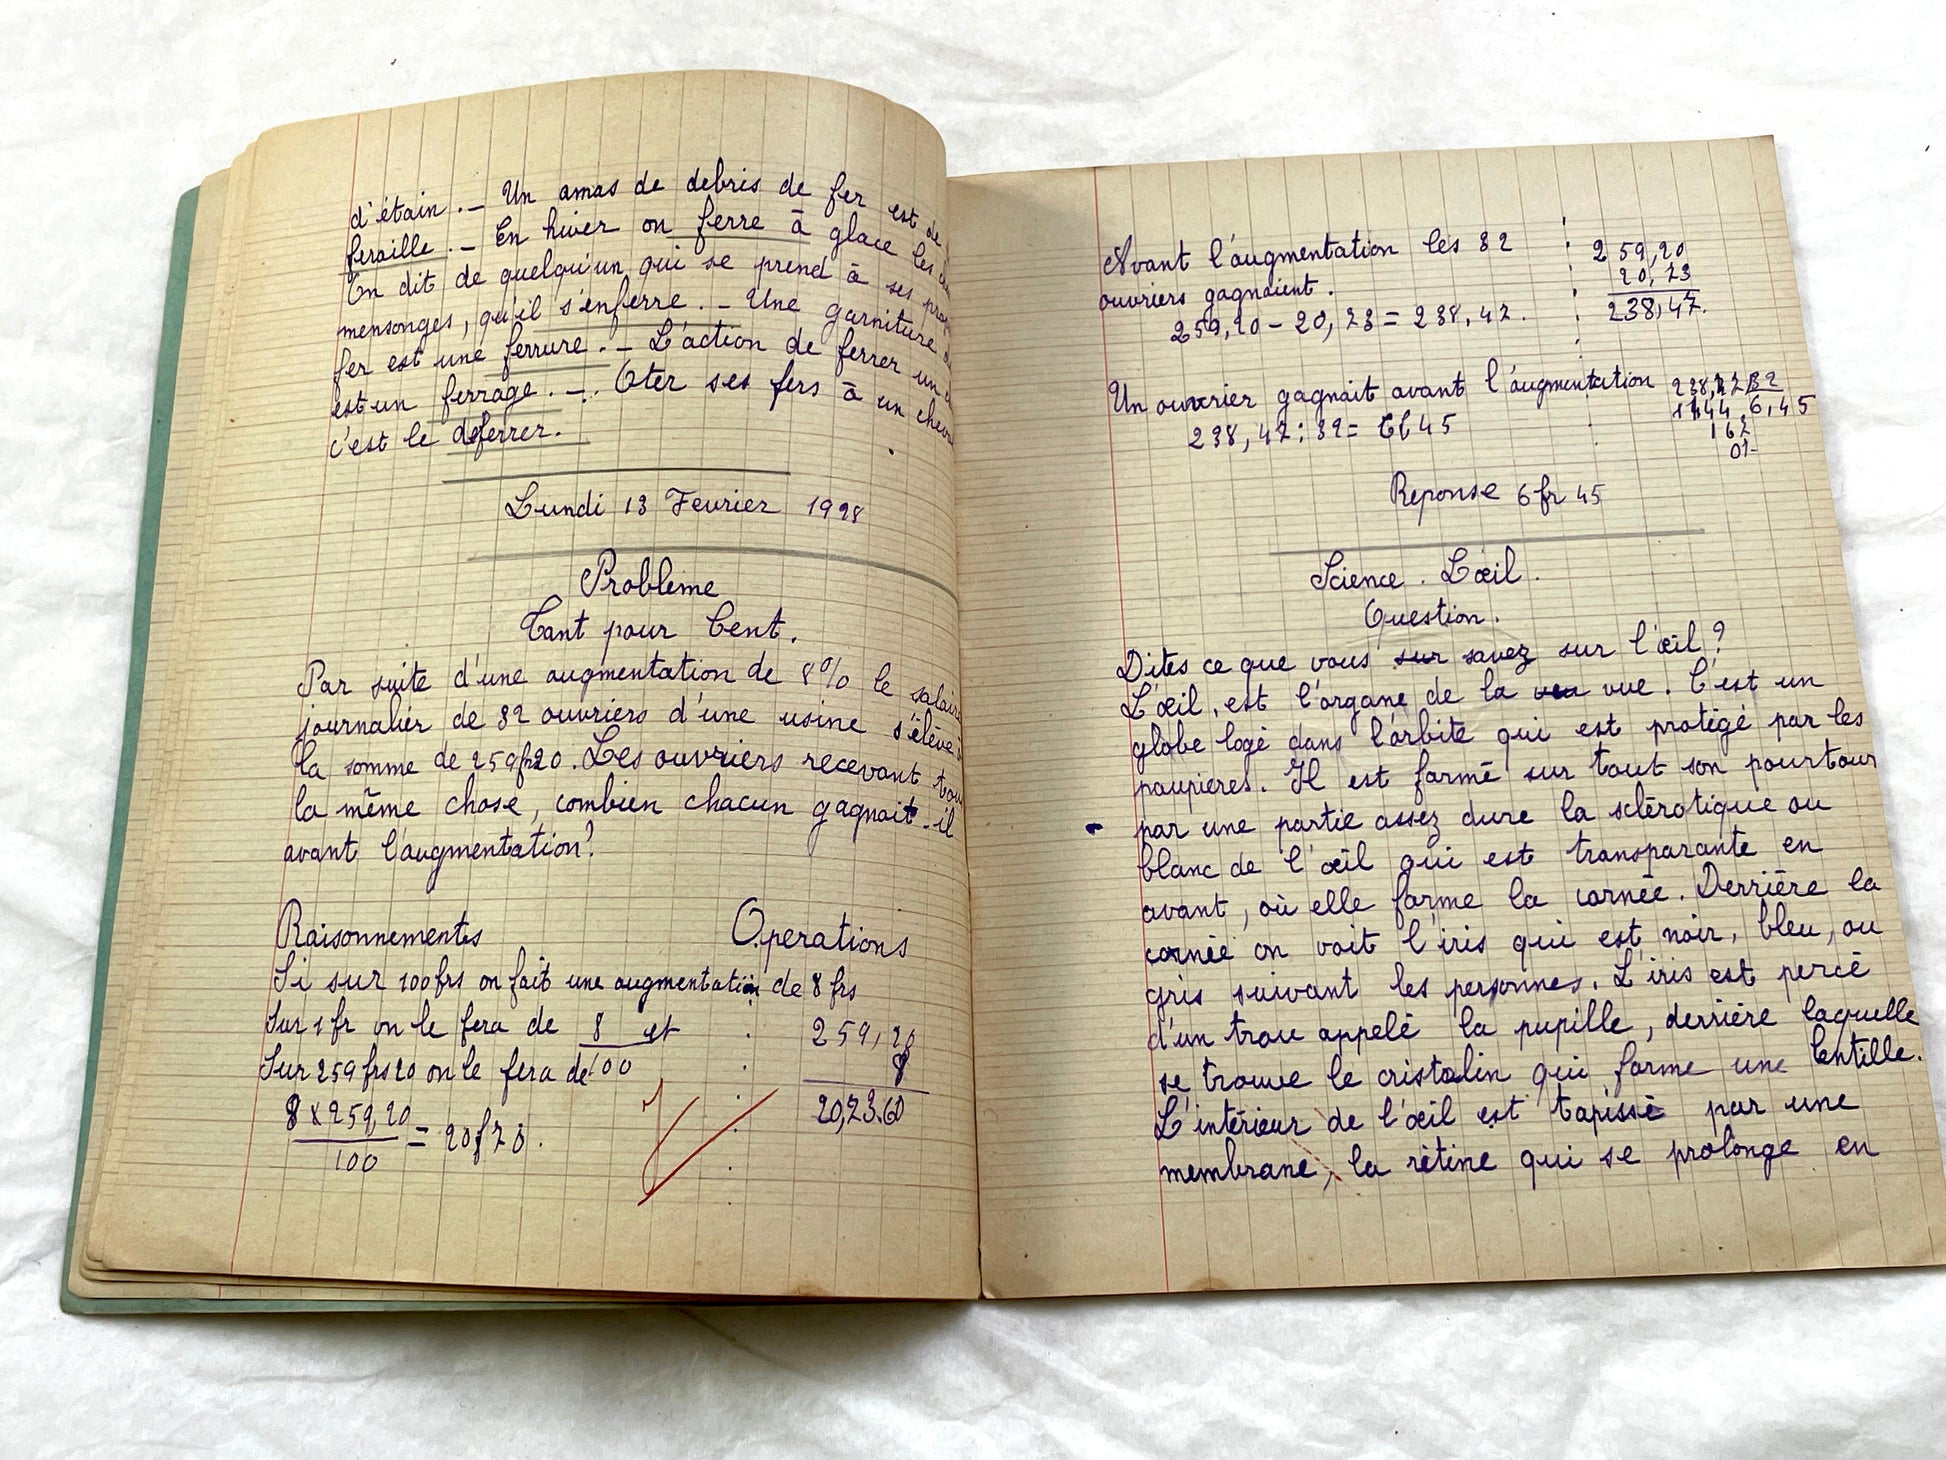 d'étain. — Un amas de debris de fer est de
feraille. — En hiver on ferre à glace les
On dit de quelqu'un qui se prend à ses
mensonges, qu'il s'enferre. — Une garniture
fer est une ferrure. — L'action de ferrer un
est un ferrage. —. Oter ses fers à un
c'est le deferrer.
Lundi 13 Fevrier 1928
Problème
Tant pour Cent.
Par suite d'une augmentation de 8% le salaire
journalier de 32 ouvriers d'une usine s'élève à
la somme de 259fr20. Les ouvriers recevant
la même chose, combien chacun gagnait-il
avant l'augmentation?
Raisonnements Operations
Si sur 100frs on fait une augmentation de 8 frs
Sur 1 fr on le fera de 8 et : 259,20
Sur 259 frs 20 on le fera de 100 : 8
8 x 259,20 = 20f73. : 20,73.60
100
Avant l'augmentation les 32 : 259,20
ouvriers gagnaient. : 20,73
259,20 - 20,73 = 238,47. : 238,47.
Un ouvrier gagnait avant l'augmentation 238,47 32
238,47 : 32 = 45 144 6,45
167
07
Reponse 6 fr 45
Science. L'œil.
Question.
Dites ce que vous sur savez sur l'œil?
L'œil, est l'organe de la vue. C'est un
globe logé dans l'orbite qui est protégé par les
paupieres. Il est formé sur tout son pourtour
par une partie assez dure la sclérotique ou
blanc de l'œil qui est transparante en
avant, où elle forme la cornée. Derrière la
cornée on voit l'iris qui est noir, bleu, ou
gris suivant les personnes. L'iris est percé
d'un trou appelé la pupille, derrière laquelle
se trouve le cristalin qui forme une lentille.
L'intérieur de l'œil est tapissé par une
membrane, la rétine qui se prolonge en